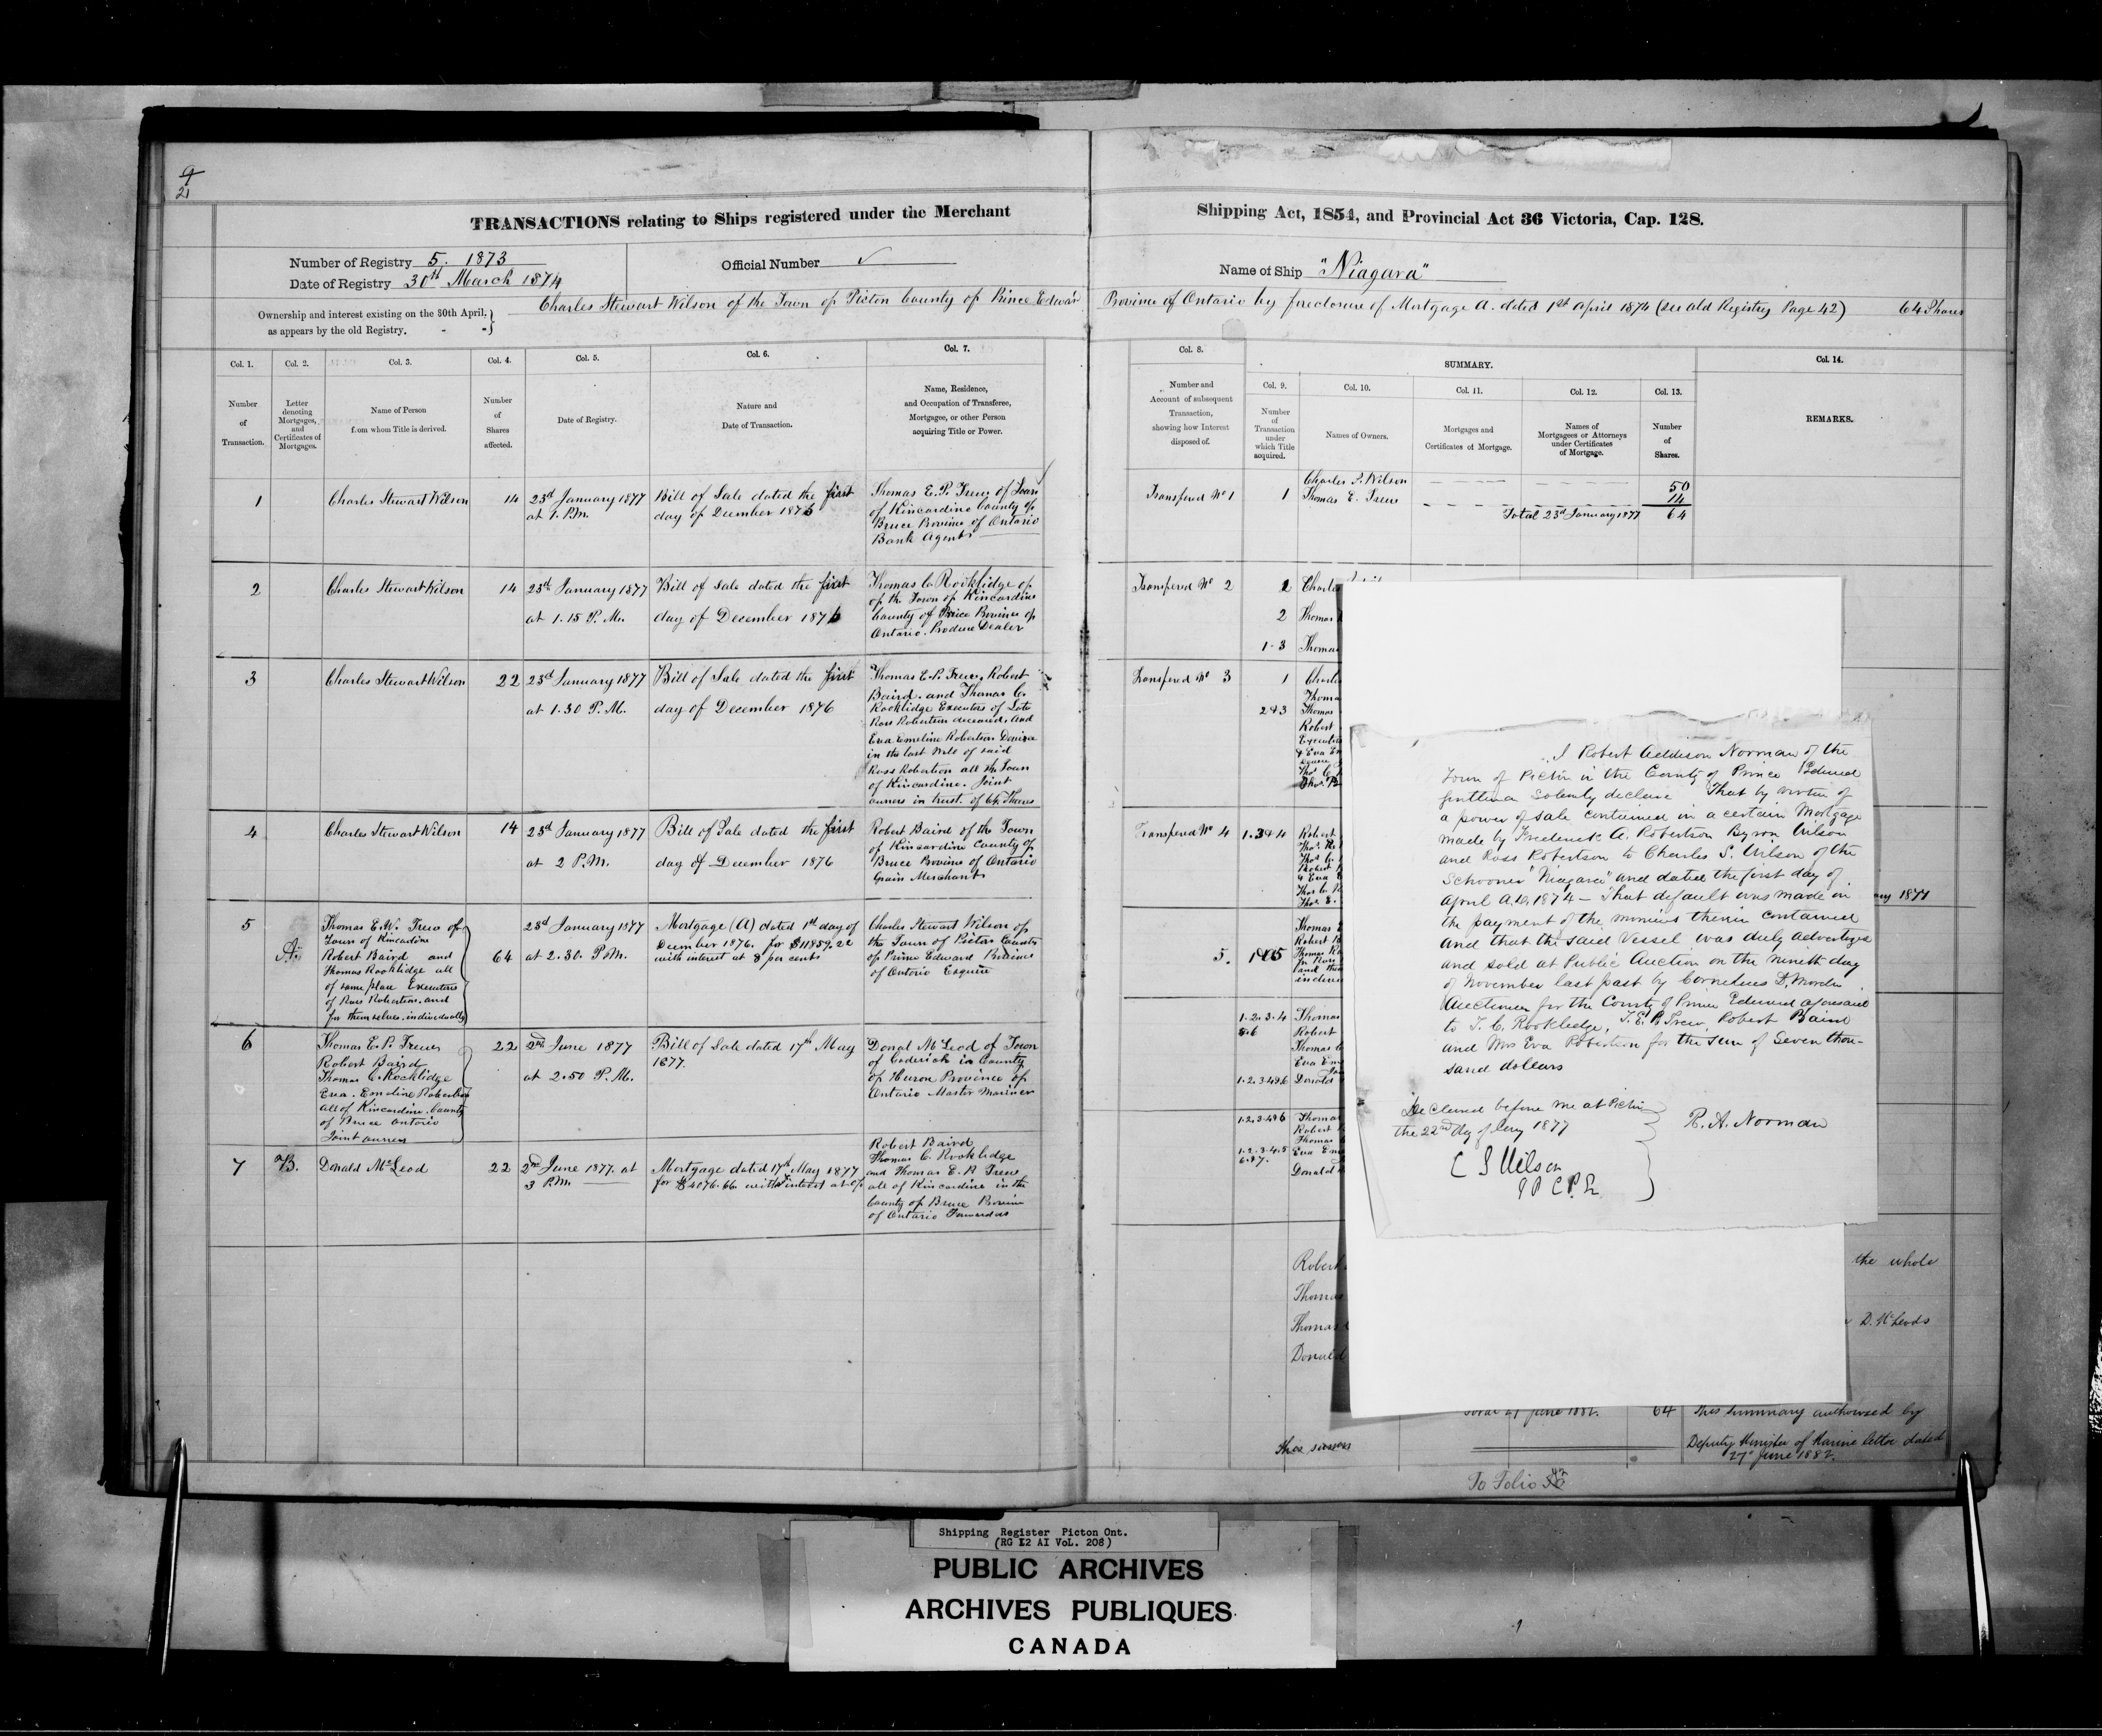 9
21
TRANSACTIONS relating to Ships registered under the Merchant
Shipping Act, 1854, and Provincial Act 36 Victoria, Cap. 128.
Number of Registry 5. 1873
Date of Registry 30th March 1874
Official Number ✓
Name of Ship "Niagara"
Ownership and interest existing on the 30th April,
as appears by the old Registry.
Charles Stewart Wilson of the Town of Picton County of Prince Edward
Province of Ontario by foreclosure of Mortgage A. dated 1st April 1874 (see old Registry Page 42) 64 Shares
Col. 1.
Number
of
Transaction.
Col. 2.
Letter
denoting
Mortgages,
and
Certificates of
Mortgages.
Col. 3.
Name of Person
from whom Title is derived.
Col. 4.
Number
of
Shares
affected.
Col. 5.
Date of Registry.
Col. 6.
Nature and
Date of Transaction.
Col. 7.
Name, Residence,
and Occupation of Transferee,
Mortgagee, or other Person
acquiring Title or Power.
Col. 8.
Number and
Account of subsequent
Transaction,
showing how Interest
disposed of.
SUMMARY.
Col. 9.
Number
of
Transaction
under
which Title
acquired.
Col. 10.
Names of Owners.
Col. 11.
Mortgages and
Certificates of Mortgage.
Col. 12.
Names of
Mortgagees or Attorneys
under Certificates
of Mortgage.
Col. 13.
Number
of
Shares.
Col. 14.
REMARKS.
1
Charles Stewart Wilson
14
23rd January 1877
at 1. P.M.
Bill of Sale dated the first
day of December 1876
Thomas E. P. Trew of Town
of Kincardine County of
Bruce Province of Ontario
Bank Agent
Transfered No 1
1
Charles S. Wilson
Thomas E. Trew
50
14
Total 23rd January 1877 64
2
Charles Stewart Wilson
14
23rd January 1877
at 1.15 P.M.
Bill of Sale dated the first
day of December 1876
Thomas C. Rooklidge of
of the Town of Kincardine
County of Bruce Province of
Ontario. Produce Dealer
Transfered No 2
2
2 Thomas
1.3
3
Charles Stewart Wilson
22
23rd January 1877
at 1.30 P.M.
Bill of Sale dated the first
day of December 1876
Thomas E. P. Trew, Robert
Baird, and Thomas C.
Rooklidge Executors of Late
Ross Robertson deceased, and
Eva Emeline Robertson Devisee
in the last Will of said
Ross Robertson all the Town
of Kincardine. Joint
owners in trust. of 64 Shares
Transfered No 3
1
2&3
Robert
4
Charles Stewart Wilson
14
23rd January 1877
at 2 P.M.
Bill of Sale dated the first
day of December 1876
Robert Baird of the Town
of Kincardine County of
Bruce Province of Ontario
Grain Merchant
Transfered No 4
1.3&4
Robert
1877
5
A.
Thomas E. W. Trew of
Town of Kincardine
Robert Baird and
Thomas Rooklidge all
of same place Executors
of Ross Robertson, and
for themselves individually
64
23rd January 1877
at 2.30. P.M.
Mortgage (A) dated 1st day of
December 1876. for $11859.22
with interest at 8 per cent
Charles Stewart Wilson of
the Town of Picton County
of Prince Edward Province
of Ontario Esquire
5.
6
Thomas E. P. Trew
Robert Baird
Thomas C. Rooklidge
Eva. Emeline Robertson
all of Kincardine. County
of Bruce Ontario
Joint owners
22
2nd June 1877
at 2.50 P.M.
Bill of Sale dated 17th May
1877.
Donal McLeod of Town
of Goderich in County
of Huron Province of
Ontario Master Mariner
1.2.3.4
5.6
Robert
1.2.3.4&6 Donald
7
B.
Donald McLeod
22
2nd June 1877. at
3 P.M.
Mortgage dated 17th May 1877
for $4076.66. with interest at
Robert Baird
Thomas C. Rooklidge
and Thomas E. P. Trew
all of Kincardine in the
County of Bruce Province
of Ontario Forwarders
1.2.3.4&6
1.2.3.4.5
6.&7.
Donald
Robert
Thomas
Thomas
Donald
the whole
D. McLeods
I Robert Addison Norman of the
Town of Picton in the County of Prince Edward
Gentleman Solemnly declare That by virtue of
a power of sale contained in a certain Mortgage
made by Frederick A. Robertson Byron Wilson
and Ross Robertson to Charles S. Wilson of the
Schooner "Niagara" and dated the first day of
April A.D. 1874 – That default was made in
the payment of the monies therein contained
and that the said Vessel was duly advertized
and sold at Public Auction on the nineth day
of November last past by Cornelius D. Morden
Auctioneer for the County of Prince Edward aforesaid
to T. C. Rookledge, T. E. P. Trew, Robert Baird
and Mrs Eva Robertson for the sum of Seven thou-
sand dollars
Declared before me at Picton
the 22nd day of Jany 1877
R. A. Norman
C S Wilson
J P C P. E.
Total 27 June 1882. 64
This summary authorized by
Deputy Minister of Marine letter dated
27th June 1882.
To Folio
Shipping Register Picton Ont.
(RG 12 AI VoL. 208)
PUBLIC ARCHIVES
ARCHIVES PUBLIQUES
CANADA